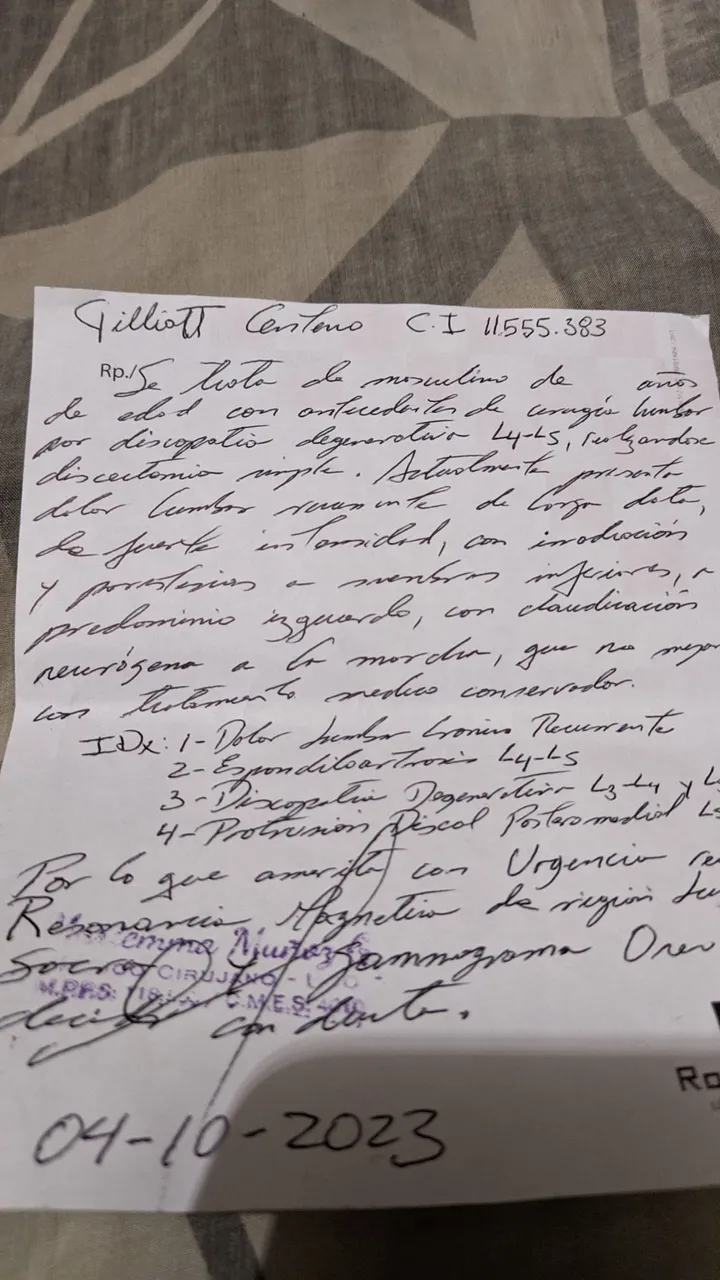 Gilliott Centeno C.I 11.555.383
Rp./ Se trata de masculino de años
de edad con antecedentes de cirugía lumbar
por discopatia degenerativa L4-L5, realizandose
discectomia simple. Actualmente presenta
dolor lumbar recurrente de larga data,
de fuerte intensidad, con irradiación
y parestesias a miembros inferiores, a
predominio izquierdo, con claudicación
neurógena a la marcha, que no
con tratamiento medico conservador.
IDx: 1- Dolor Lumbar Cronico Recurrente
2- Espondiloartrosis L4-L5
3- Discopatia Degenerativa L3-L4 y
4- Protrusión Discal Posteromedial
Por lo que amerita con Urgencia
Resonancia Magnetica de región
Gammagrama
CIRUJANO
M.P.P.S: C.M.E.S:
decidir conducta.
04-10-2023